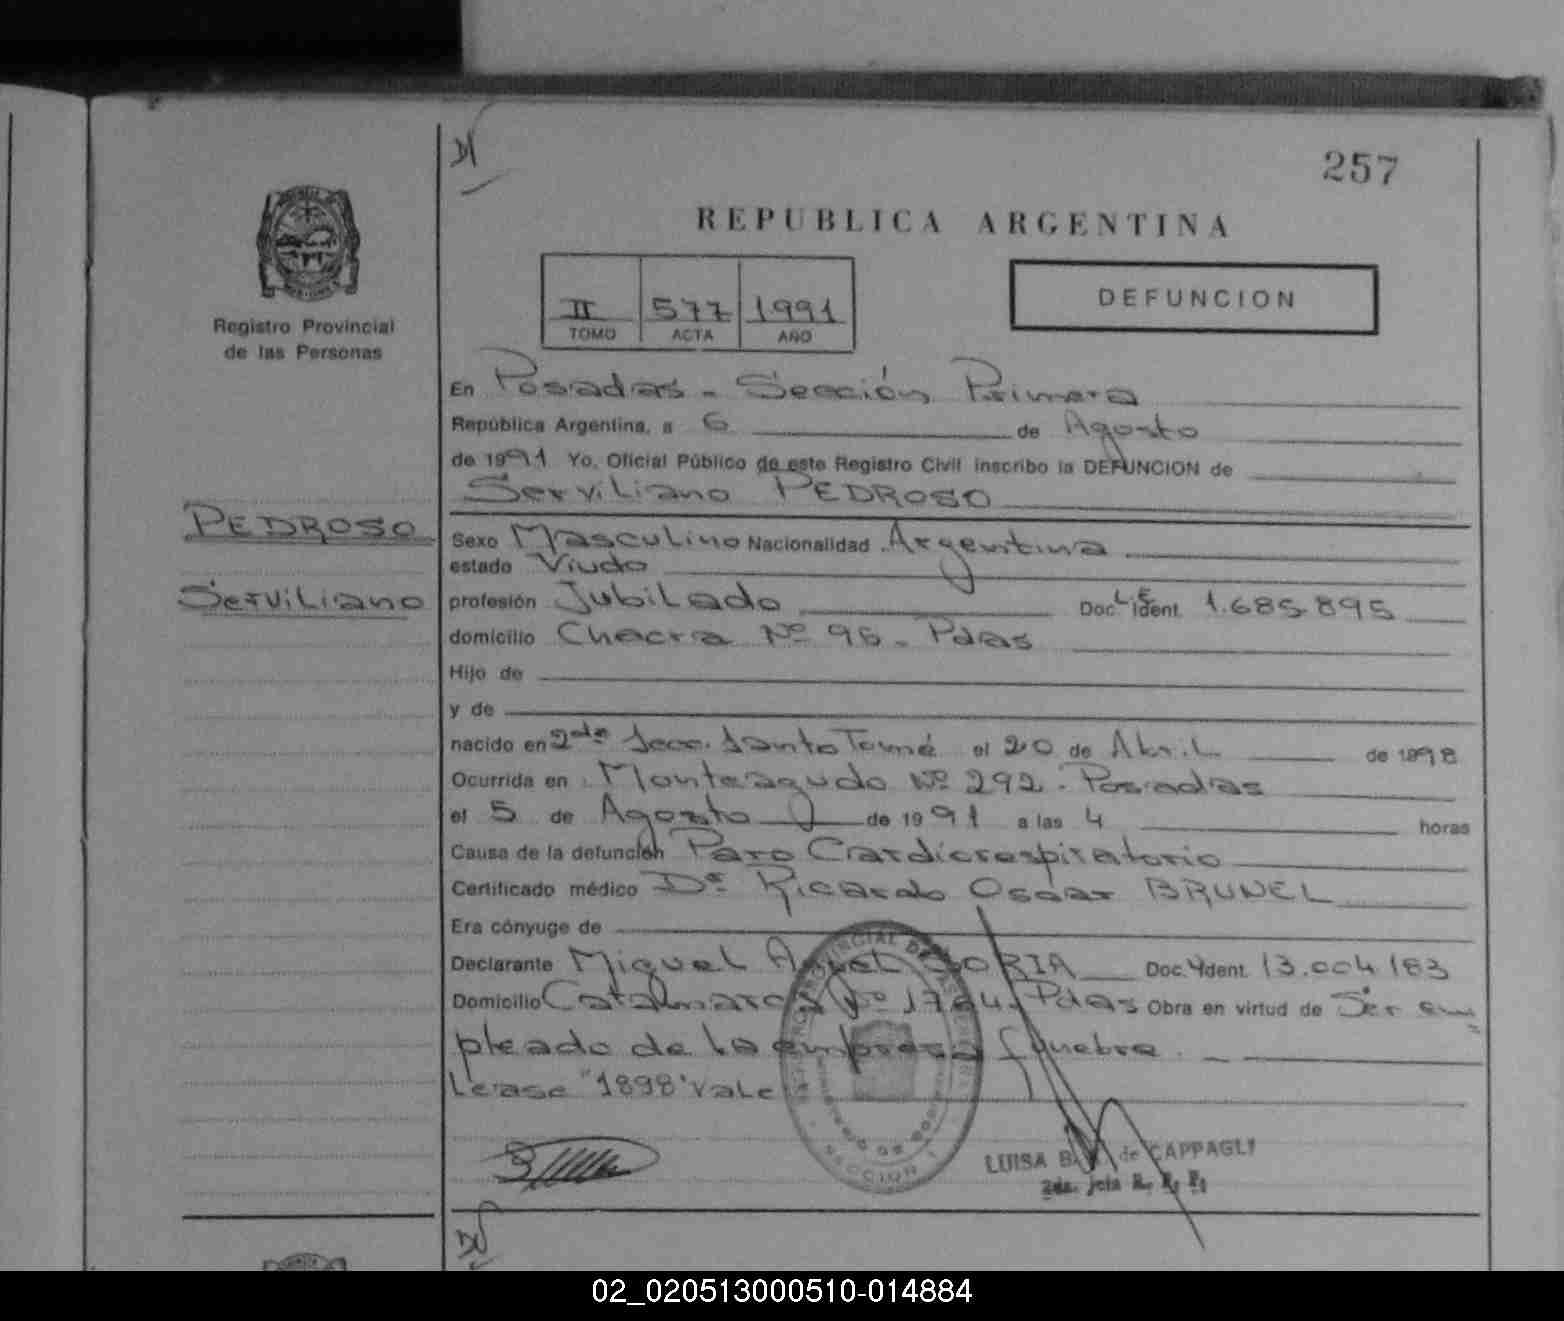 257
REPUBLICA ARGENTINA
Registro Provincial
de las Personas
II 577 1991
TOMO ACTA AÑO
DEFUNCION
En Posadas - Sección Primera
República Argentina, a 6 de Agosto
de 1991 Yo, Oficial Público de este Registro Civil inscribo la DEFUNCION de
Serviliano PEDROSO
PEDROSO
Serviliano
Sexo Masculino Nacionalidad Argentina
estado Viudo
profesión Jubilado Doc. L.E. Ident. 1.685.895
domicilio Chacra Nº 96 - Pdas
Hijo de
y de
nacido en 2da Secc. Santo Tomé el 20 de Abril de 1898
Ocurrida en Monteagudo Nº 292 - Posadas
el 5 de Agosto de 1991 a las 4 horas
Causa de la defunción Paro Cardiorespiratorio
Certificado médico Dr Ricardo Oscar BRUNEL
Era cónyuge de
Declarante Miguel Angel DORIA Doc. Ident. 13.004.183
Domicilio Catamarca Nº 1764 - Pdas Obra en virtud de Ser em
pleado de la empresa fúnebre.
Lease "1898" Vale
LUISA B. de CAPPAGLI
2da. Jefa R. P. P.
REGISTRO PROVINCIAL DE LAS PERSONAS
MINISTERIO DE GOBIERNO
SECCION 1
02_020513000510-014884